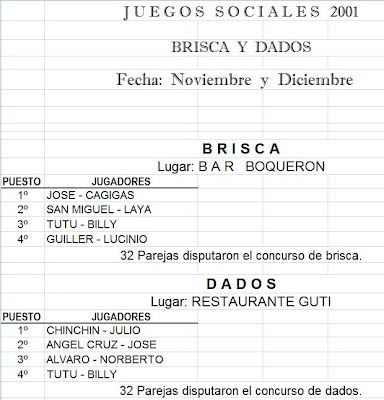 JUEGOS SOCIALES 2001
BRISCA Y DADOS
Fecha: Noviembre y Diciembre
BRISCA
Lugar: BAR BOQUERON
PUESTO JUGADORES
1º JOSE - CAGIGAS
2º SAN MIGUEL - LAYA
3º TUTU - BILLY
4º GUILLER - LUCINIO
32 Parejas disputaron el concurso de brisca.
DADOS
Lugar: RESTAURANTE GUTI
PUESTO JUGADORES
1º CHINCHIN - JULIO
2º ANGEL CRUZ - JOSE
3º ALVARO - NORBERTO
4º TUTU - BILLY
32 Parejas disputaron el concurso de dados.